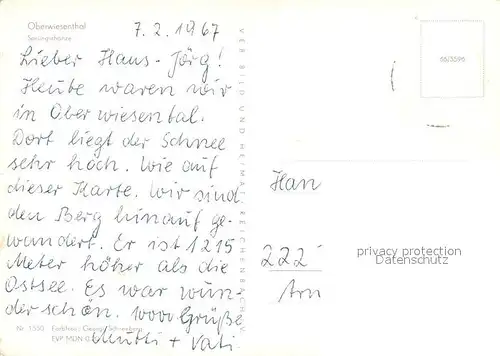 Oberwiesenthal
Sprungschanze
7. 2. 1967
Lieber Hans-Jörg!
Heute waren wir
in Oberwiesental.
Dort liegt der Schnee
sehr hoch. Wie auf
dieser Karte. Wir sind
den Berg hinauf ge-
wandert. Er ist 1215
Meter höher als die
Ostsee. Es war wun-
der schön. 1000 Grüße
Mutti + Vati
Nr. 1550 Farbfoto: Georg
EVP MDN 0
VEB BILD UND HEIMAT REICHENBACH I. V.
65/3596
Han
222
Arn
privacy protection
Datenschutz